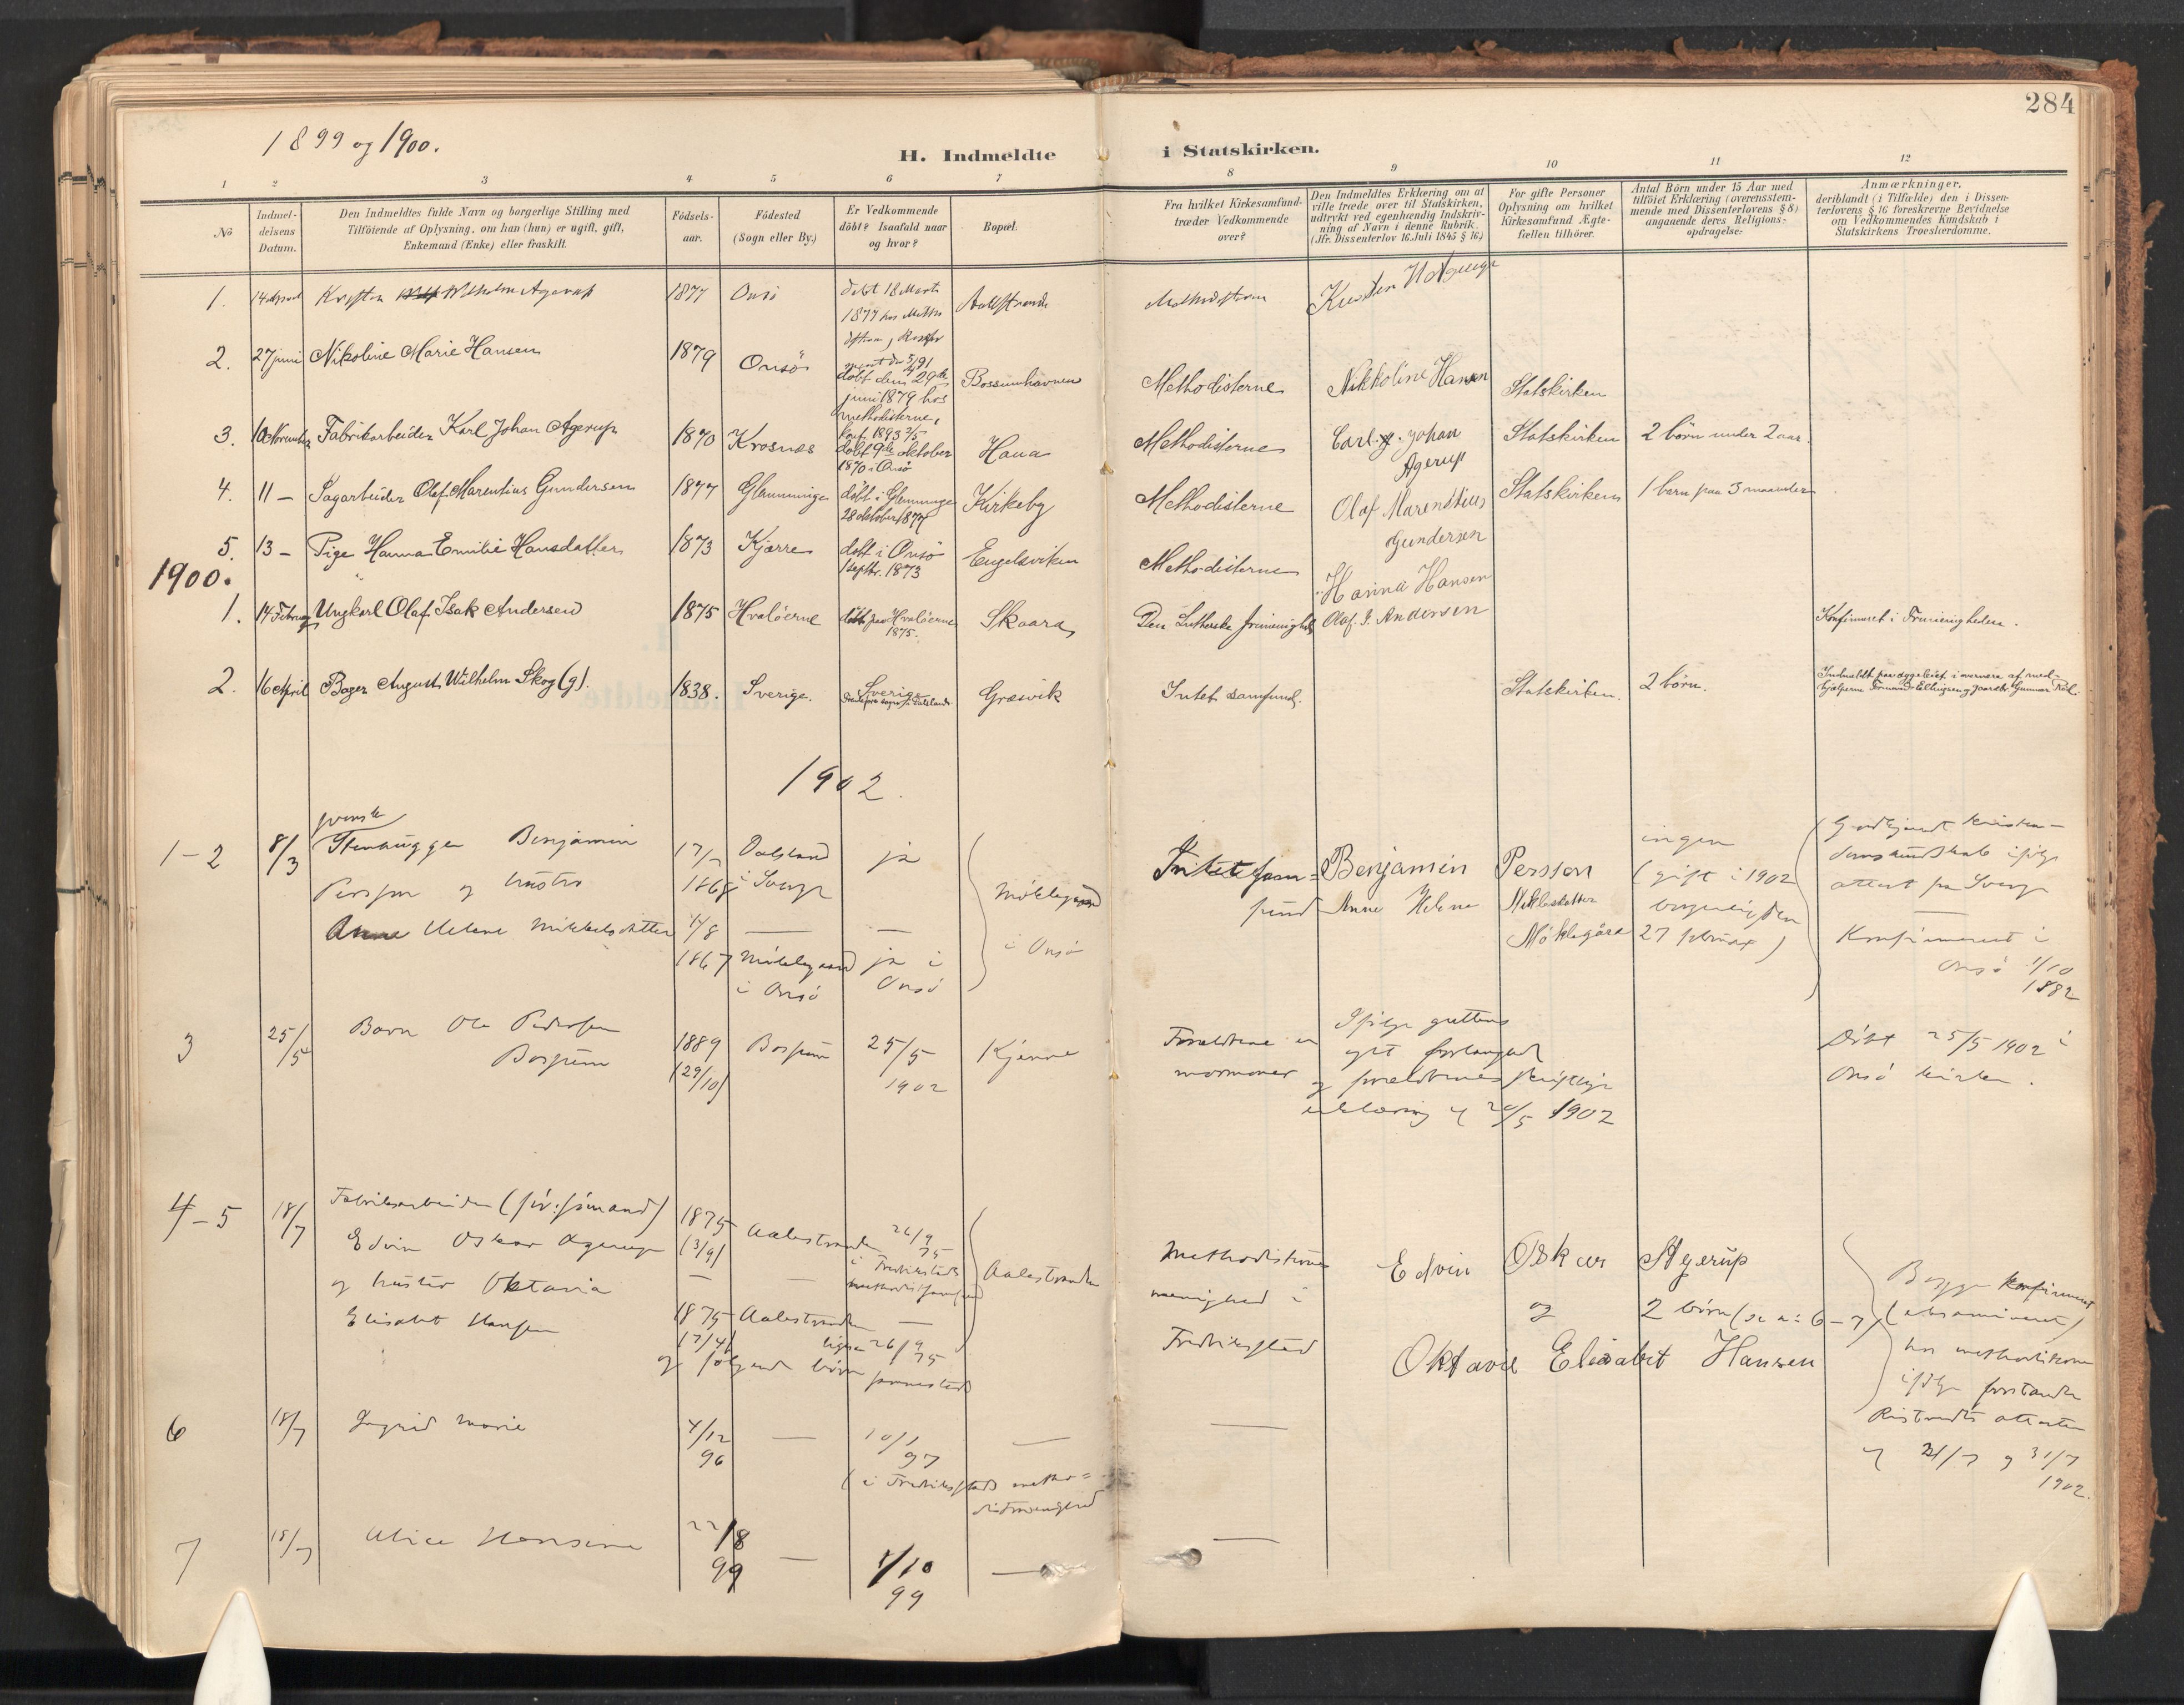 284
1899 og 1900.
H. Indmeldte i Statskirken.
1 2 3 4 5 6 7 8 9 10 11 12
No
Indmel-
delsens
Datum.
Den Indmeldtes fulde Navn og borgerlige Stilling med
Tilføiende af Oplysning, om han (hun) er ugift, gift,
Enkemand (Enke) eller fraskilt.
Fødsels-
aar.
Fødested
(Sogn eller By.)
Er Vedkommende
døbt? Isaafald naar
og hvor?
Bopæl.
Fra hvilket Kirkesamfund
træder Vedkommende
over?
Den Indmeldtes Erklæring om at
ville træde over til Statskirken,
udtrykt ved egenhændig Indskriv-
ning af Navn i denne Rubrik.
(Jfr. Dissenterlov 16. Juli 1845 § 16.)
For gifte Personer
Oplysning om hvilket
Kirkesamfund Ægte-
fællen tilhører.
Antal Börn under 15 Aar med
tilföiet Erklæring (overensstem-
mende med Dissenterlovens § 8)
angaaende deres Religions-
opdragelse:
Anmærkninger,
deriblandt (i Tilfælde) den i Dissen-
terlovens § 16 foreskrevne Bevidnelse
om Vedkommendes Kundskab i
Statskirkens Troeslærdomme.
1. 14 April Wilhelm Agerup 1877 Onsö
døbt 18 Marts
1877 hos
2. 27 juni Nikoline Marie Hansen 1879 Onsö
døbt den 29de
juni 1879 hos
methodisterne,
konf. 1893
Methodisterne Nikholine Hansen Statskirken
3. 10 November Fabrikarbeider Karl Johan Agerup 1870 Krosnæs
døbt 9de oktober
1870 i Onsö
Methodisterne
Carl Johan
Agerup
Statskirken 2 börn under 2 aar.
4. 11 – Sagarbeider Olaf Marentius Gundersen 1877 Glemminge
döbt i Glemminge
28 oktober 1877
Kirkeby Methodisterne
Olaf Marenstius
Gundersen
Statskirken 1 barn paa 3 maaneder
5. 13 – Pige Hanna Emilie Hansdatter 1873 Kjærre
döbt i Onsö
1 septbr. 1873
Engelsviken Methodisterne Hanna Hansen
1900.
1. 14 Februar Ungkarl Olaf Isak Andersen 1875 Hvaløerne
döbt paa Hvaløerne
1875.
Skaara Den Lutherske frimenighed Olaf. I. Andersen Konfirmeret i Frimenigheden.
2. 16 April Bager August Wilhelm Skog (g). 1838. Sverige. Sverige
Græsvik Intet samfund. Statskirken. 2 börn.
1902.
1–2 8/3 svensk
Stenhugger Benjamin
Persson og hustru
Helene Mikkelsdatter
Dalsland
i Sverge
ja
1867
i Onsö
ja i
Onsö
i Onsö
Intet sam=
fund
Benjamin Persson
Anne Helene
ingen
(gift i 1902
borgerlig den
27 februar)
attest fra Sverge
Konfirmeret i
Onsö 1/10
1882
3 25/5 Barn Ole Pedersen
1889
(29/10)
25/5
1902
Kjenne
Forældrene er
mormoner
Ifölge guttens
eget forlangende
og forældrenes skriftlige
erklæring af 20/5 1902
Döbt 25/5 1902 i
Onsö kirke.
4–5 18/7 Fabrikarbeider
Edvin Oskar Agerup
og hustru Oktavia
Elisabet Hansen
1875
(3/9)
Aalestranden
26/9
75
i Fredrikstads
Aalestranden
1875
Aalestranden
ligesaa 26/9
75
og følgende börn
Methodisternes
menighed i
Fredrikstad
Edvin Oskar Agerup
og 2 börn
Oktavie Elisabet Hansen
Begge konfirmeret
hos methodisterne
ifölge forstander
31/7
1902.
6 18/7 Ingrid Marie
4/12
96
10/1
97
(i Fredrikstads metho=
distmenighed
7 18/7 Alice Hansine
22/8
99
1/10
99